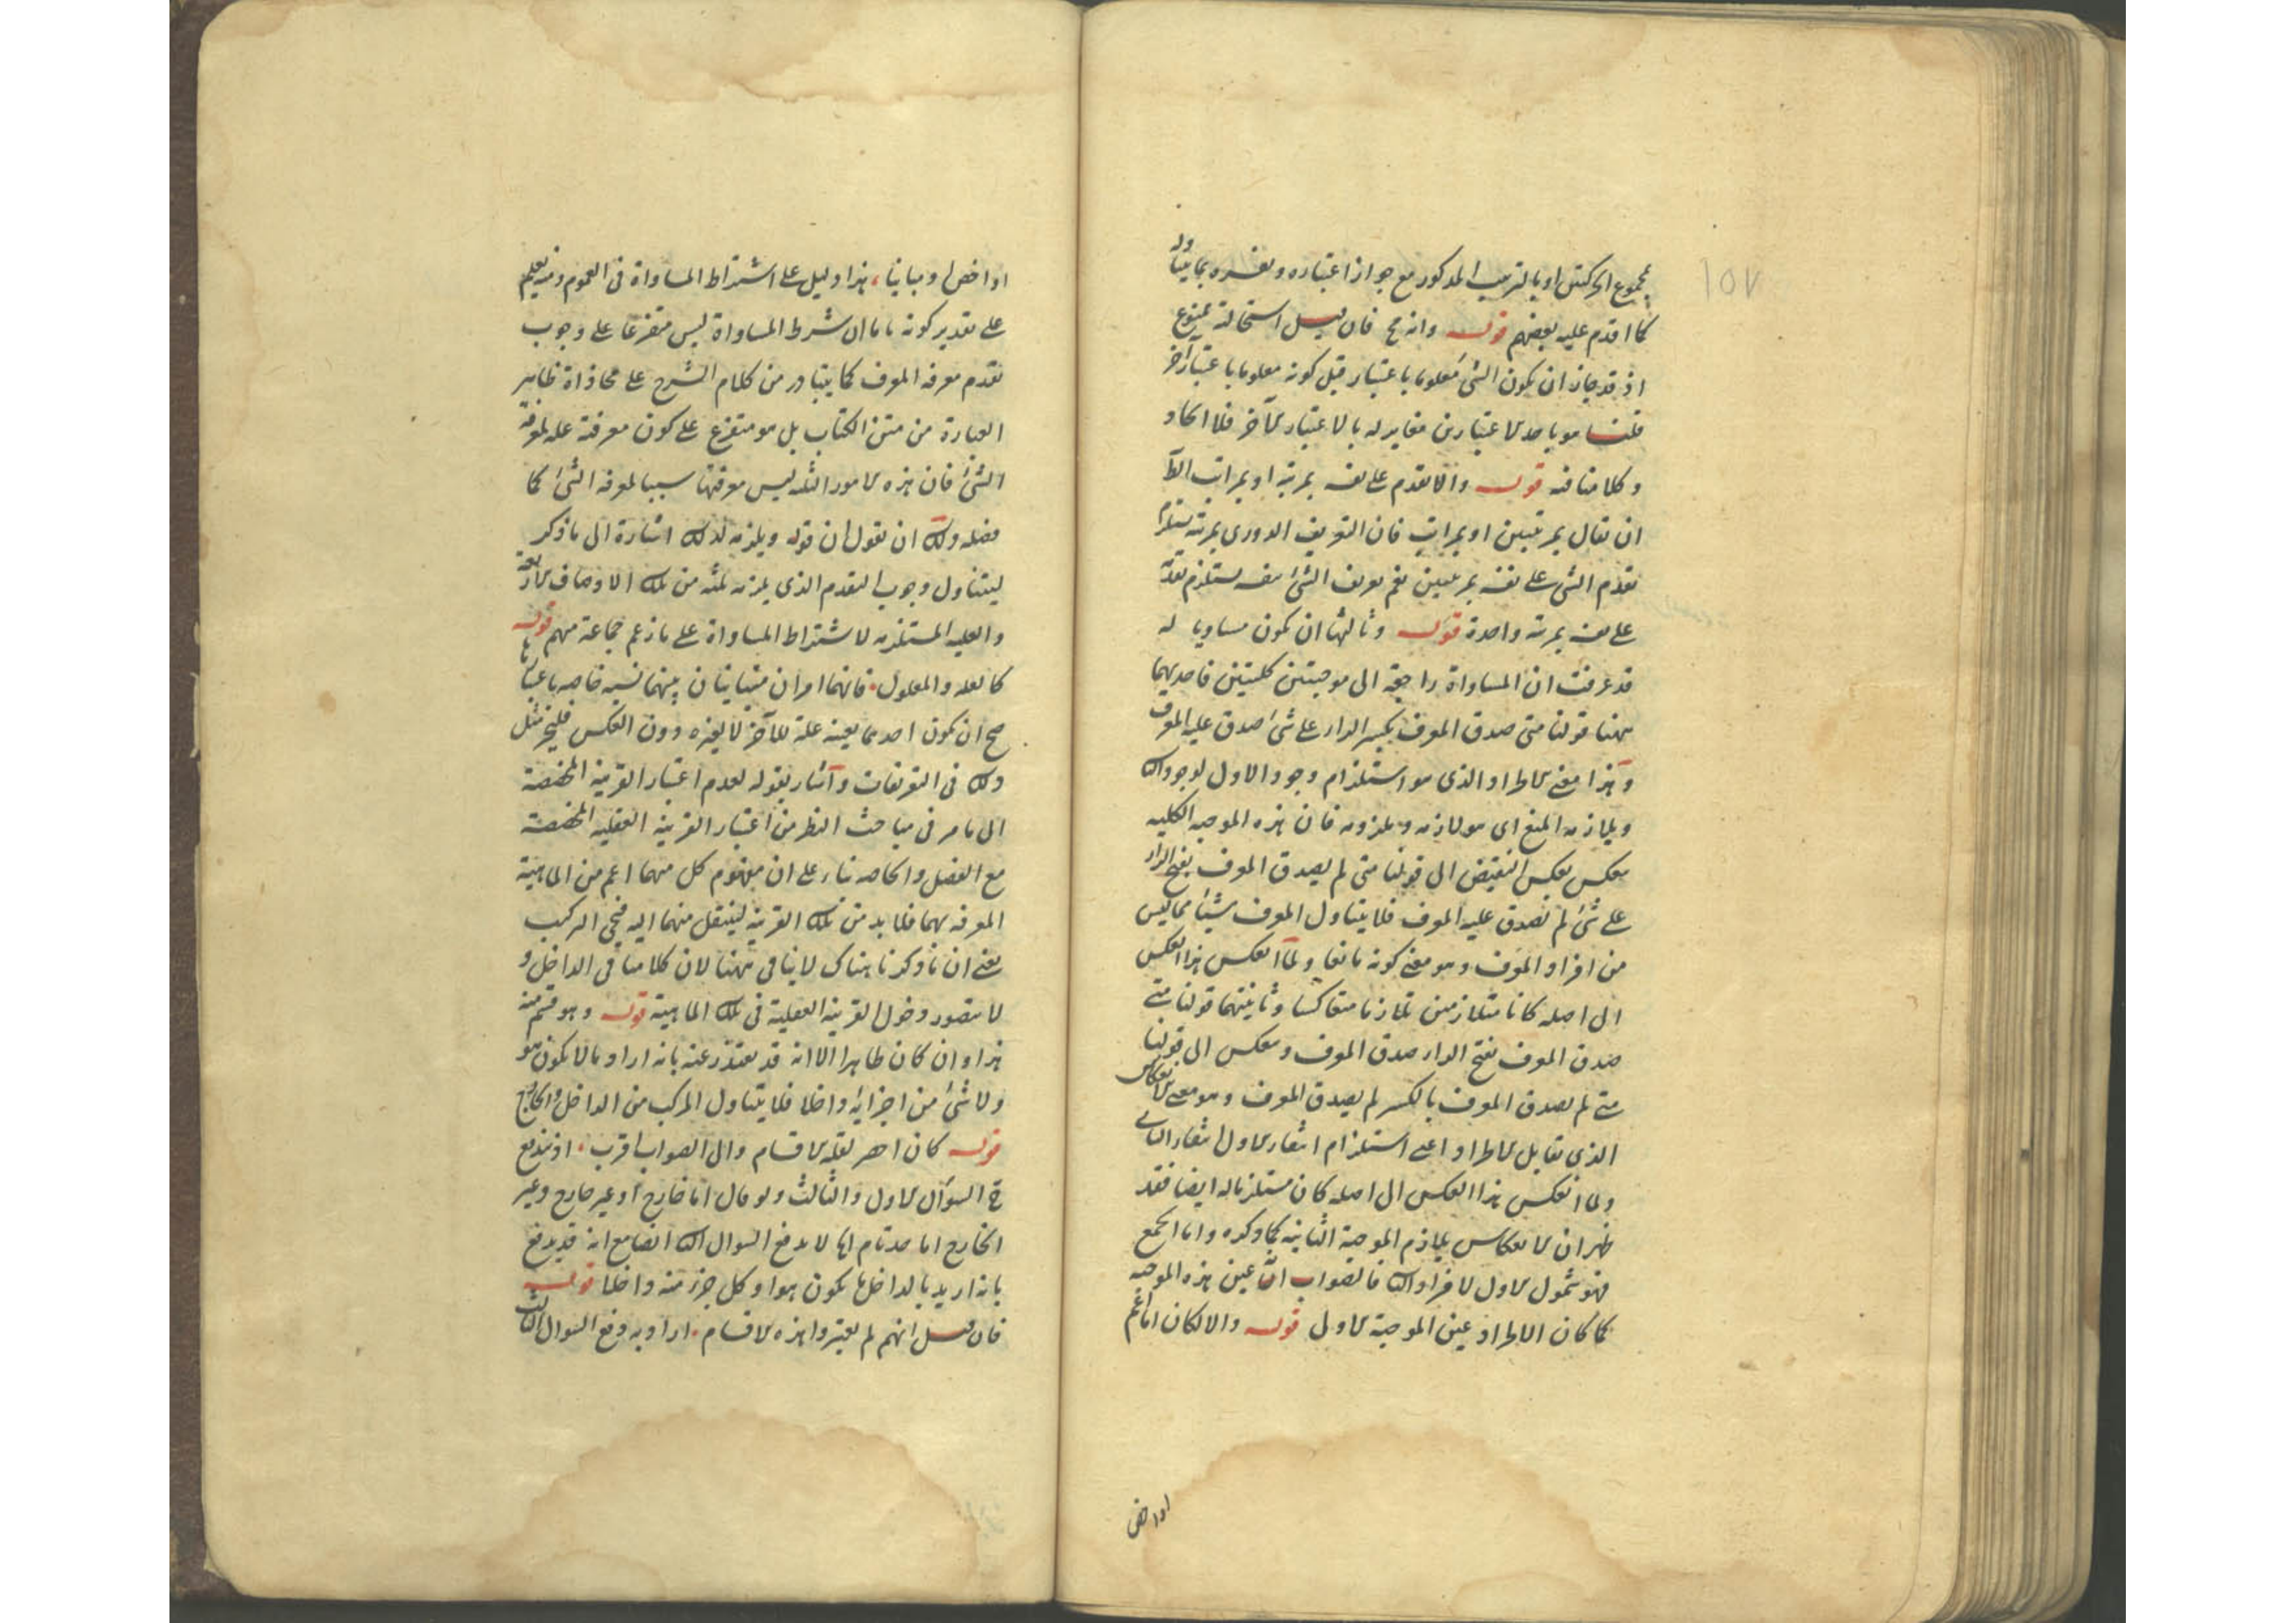 ١٥٧
مجموع الحركتين او بالترتيب المذكور مع جواز اعتباره وتفسره بما يتناوله
كما اقدم عليه بعضهم قوله وانه مح فان قيل استحالته ممنوع
اذ قد جاز ان يكون الشئ معلوما باعتبار قبل كونه معلوما باعتبار آخر
قلنا هو باحد الاعتبارين مغاير له بالاعتبار الآخر فلا اتحاد
وكلامنا فيه قوله والا تقدم على نفسه بمرتبة او بمراتب الظ
ان يقال بمرتبتين او بمراتب فان التعريف الدوري بمرتبة يستلزم
تقدم الشئ على نفسه بمرتبتين نعم تعريف الشئ بنفسه يستلزم تقدمه
على نفسه بمرتبة واحدة قوله وثالثها ان يكون مساويا له
قد عرفت ان المساواة راجعة الى موجبتين كليتين فاحديهما
ههنا قولنا متى صدق المعرف بكسر الراء على شئ صدق عليه المعرف
وهذا معنى الاطراد الذي هو استلزام وجود الاول لوجود الثا
ويلازمه المنع اى هو لازمه وملزومه فان هذه الموجبة الكلية
ينعكس بعكس النقيض الى قولنا متى لم يصدق المعرف بفتح الراء
على شئ لم يصدق عليه المعرف فلا يتناول المعرف شيئا مما ليس
من افراد المعرف وهو معنى كونه مانعا ولما انعكس هذا العكس
الى اصله كانا متلازمين تلازما متعاكسا وثانيتهما قولنا متى
صدق المعرف بفتح الراء صدق المعرف وينعكس الى قولنا
متى لم يصدق المعرف بالكسر لم يصدق المعرف وهو معنى الانعكاس
الذي يقابل الاطراد اعنى استلزام انتفاء الاول انتفاء الثانى
ولما انعكس هذا العكس الى اصله كان مستلزما له ايضا فقد
ظهر ان الانعكاس يلازم الموجبة الثانية كما ذكره واما الجمع
فهو شمول الاول لافراد الثا فالصواب انه عين هذه الموجبة
كما كان الاطراد عين الموجبة الاولى قوله والا لكان اما اعم
او اخص
او اخص او مباينا هذا دليل على اشتراط المساواة فى العموم ومنه يعلم
على تقدير كونه تاما ان شرط المساواة ليس متفرعا على وجوب
تقدم معرفة المعرف كما يتبادر من كلام الشرح على محاذاة ظاهر
العبارة من متن الكتاب بل هو متفرع على كون معرفته علة لمعرفة
الشئ فان هذه الامور الثلثة ليس معرفتها سببا لمعرفة الشئ كما
فصله ولك ان تقول ان قوله ويلزمه لذلك اشارة الى ما ذكر
ليتناول وجوب التقدم الذي يلزمه ثلثة من تلك الاوصاف الاربعة
والعلية المستلزمة لاشتراط المساواة على ما زعم جماعة منهم قوله
كالعلة والمعلول فانهما امران متباينان بينهما نسبة خاصة باعتبارها
صح ان يكون احدهما بعينه علة للآخر لا لغيره دون العكس فليجز مثل
ذلك فى التعريفات واشار بقوله لعدم اعتبار القرينة المخصصة
الى ما مر فى مباحث النظر من اعتبار القرينة العقلية المخصصة
مع الفصل والخاصة بناء على ان مفهوم كل منهما اعم من الماهية
المعرفة بهما فلا بد من تلك القرينة لينتقل منهما اليه فيجئ التركيب
يعنى ان ما ذكرنا هناك لا ينافى ههنا لان كلامنا فى الداخل و
لا يتصور دخول القرينة العقلية فى تلك الماهية قوله وهو قسم منه
هذا وان كان ظاهرا الا انه قد يعتذر عنه بانه اراد ما لا يكون هو
ولا شئ من اجزائه داخلا فلا يتناول المركب من الداخل والخارج
قوله كان احصر لقلة الاقسام والى الصواب اقرب اذ يندفع
ح السؤال الاول والثالث ولو قال اما خارج او غير خارج وغير
الخارج اما حد تام لا يدفع السؤال الثا ايضا مع انه قد يدفع
بانه اريد بالداخل ما يكون هو او كل جزء منه داخلا قوله
فان قيل انهم لم يعتبروا هذه الاقسام اراد به دفع السؤال الثالث